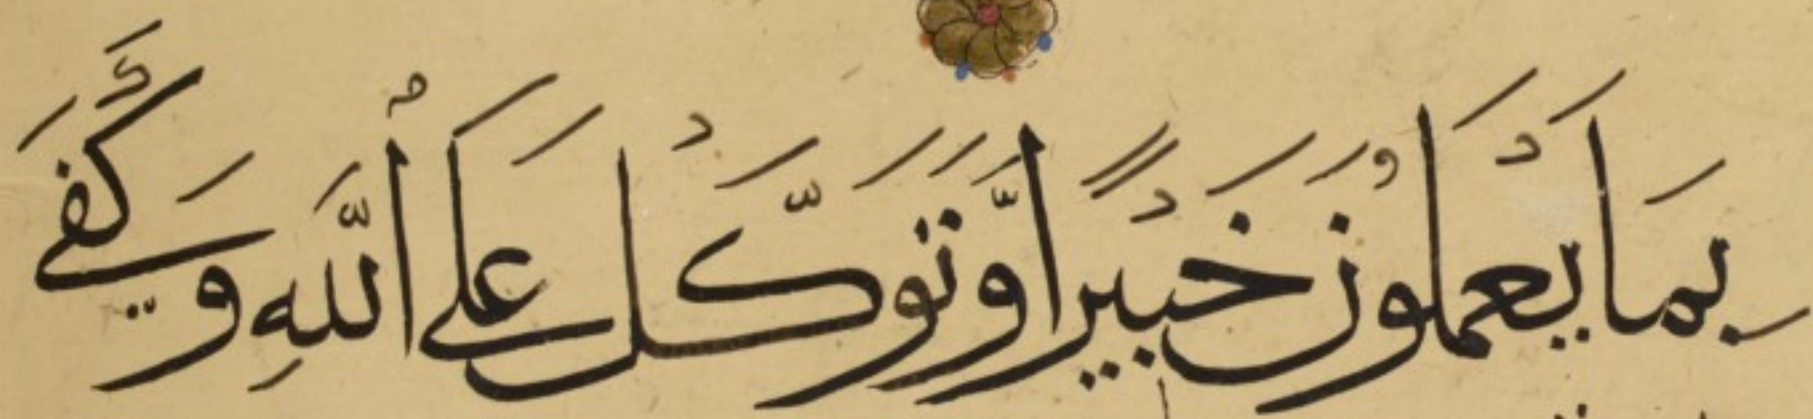 بِمَا يَعْمَلُونَ خَبِيرًا وَّتَوَكَّلْ عَلَى ٱللَّهِ وَكَفَى